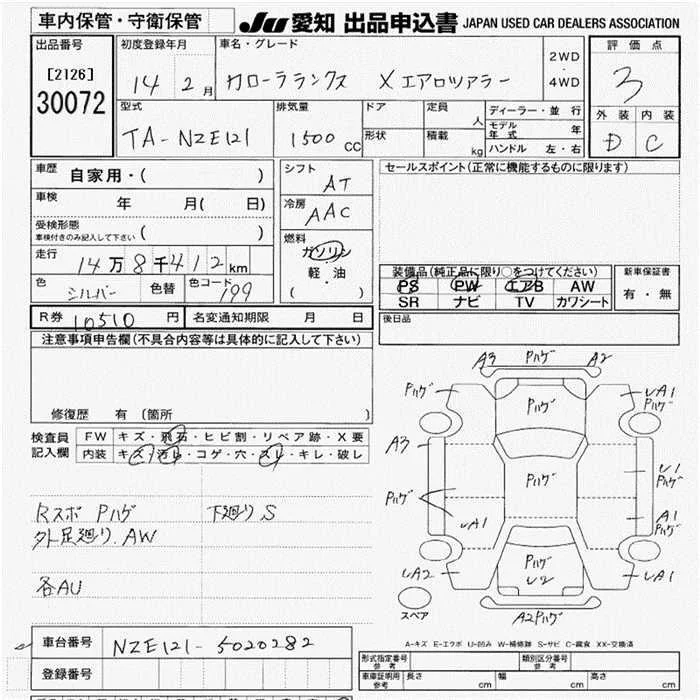 車内保管・守衛保管
JU 愛知 出品申込書 JAPAN USED CAR DEALERS ASSOCIATION
出品番号 初度登録年月 車名・グレード 2WD・4WD 評価点
[2126] 14 2月 カローラランクス Xエアロツアラー 3
30072
型式 排気量 ドア 定員 人 ディーラー・並行 外装 内装
TA-NZE121 1500 cc 形状 積載 kg モデル年式 年 D C
ハンドル 左・右
車歴 自家用・( ) シフト AT セールスポイント(正常に機能するものに限ります)
車検 年 月( 日) 冷房 AAC
受検形態
車検付きのみ記入して下さい ( ) 燃料 ガソリン
走行 14万8千412km 軽・油
( )
色 シルバー 色替 色コード 199
装備品(純正品に限り○をつけてください) 新車保証書
PS PW エアB AW 有・無
SR ナビ TV カワシート
R券 10510 円 名変通知期限 月 日 後日品
注意事項申告欄(不具合内容等は具体的に記入して下さい)
修復歴 有 (箇所 )
検査員 FW キズ・飛石・ヒビ割・リペア跡・X要
記入欄 内装 キズ・汚レ・コゲ・穴・スレ・キレ・破レ
A3 Pハゲ A2
Pハゲ Pハゲ A1 Pハゲ
A3 Pハゲ U1 Pハゲ
Pハゲ A1 A1 Pハゲ
A2 Pハゲ U2 A1
A2Pハゲ
スペア
Rスポ Pハゲ 下廻り S
外足廻り.AW
各AU
A-キズ E-エクボ U-凹み W-補修跡 S-サビ C-腐食 XX-交換済
車台番号 NZE121-5020282
登録番号
型式指定番号 参考 類別区分番号 参考
車庫証明用 参考 長さ cm 幅 cm 高さ cm